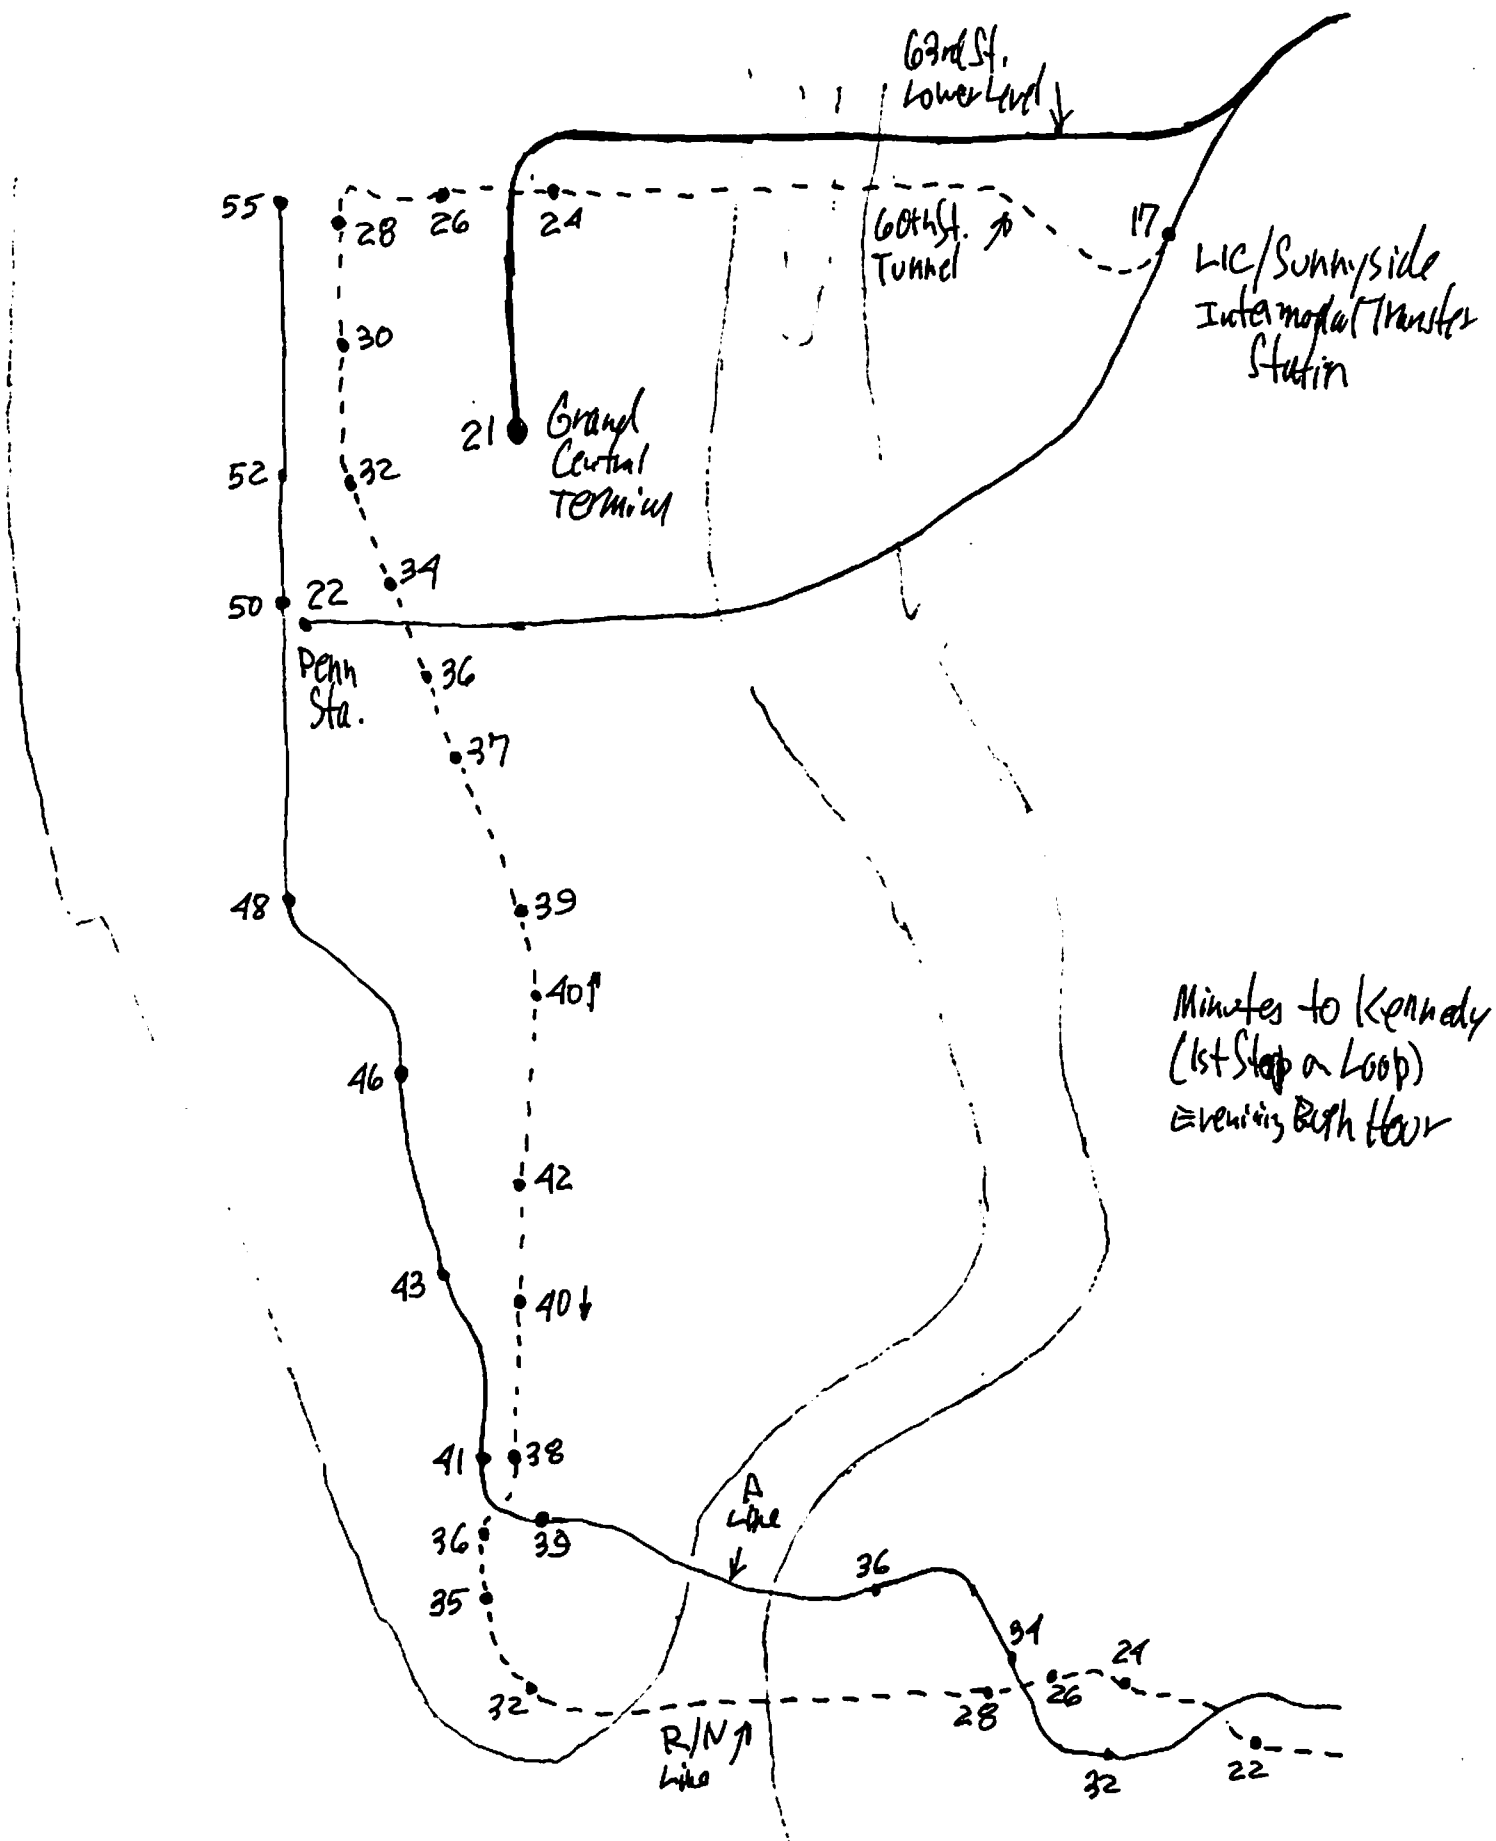 63rd St.
Lower Level ↓
55
28
26
24
60th St. ↗
Tunnel
17
LIC/Sunnyside
Intermodal Transfer
Statin
30
21
Grand
Central
Terminal
52
32
34
50
22
Penn
Sta.
36
37
48
39
40↑
Minutes to Kennedy
(1st Stop on Loop)
Evening Rush Hour
46
42
43
40↓
41
38
A
Line
↓
36
39
36
35
34
24
26
32
28
R/N↑
Line
32
22